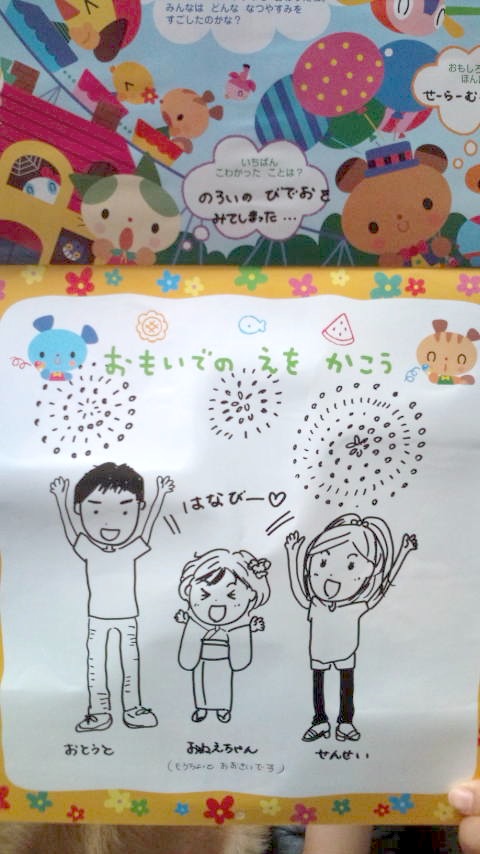 みんなは どんな なつやすみを
すごしたのかな?
おもしろ
ほん
せーらーむ
いちばん
こわかった ことは?
のろいの びでおを
みてしまった…
おもいでの えを かこう
はなびー♡
おとうと
おねえちゃん
せんせい
(もうちょっと おおきいです)